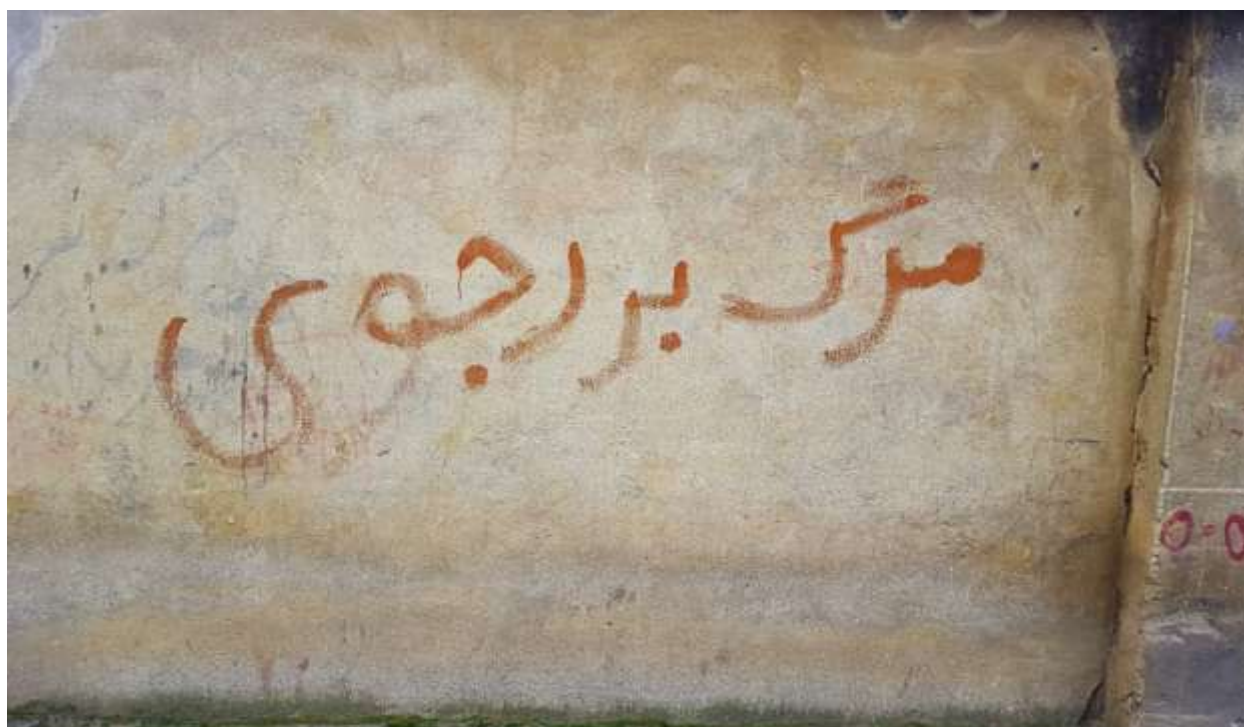 مرگ بر رجوی
0=0